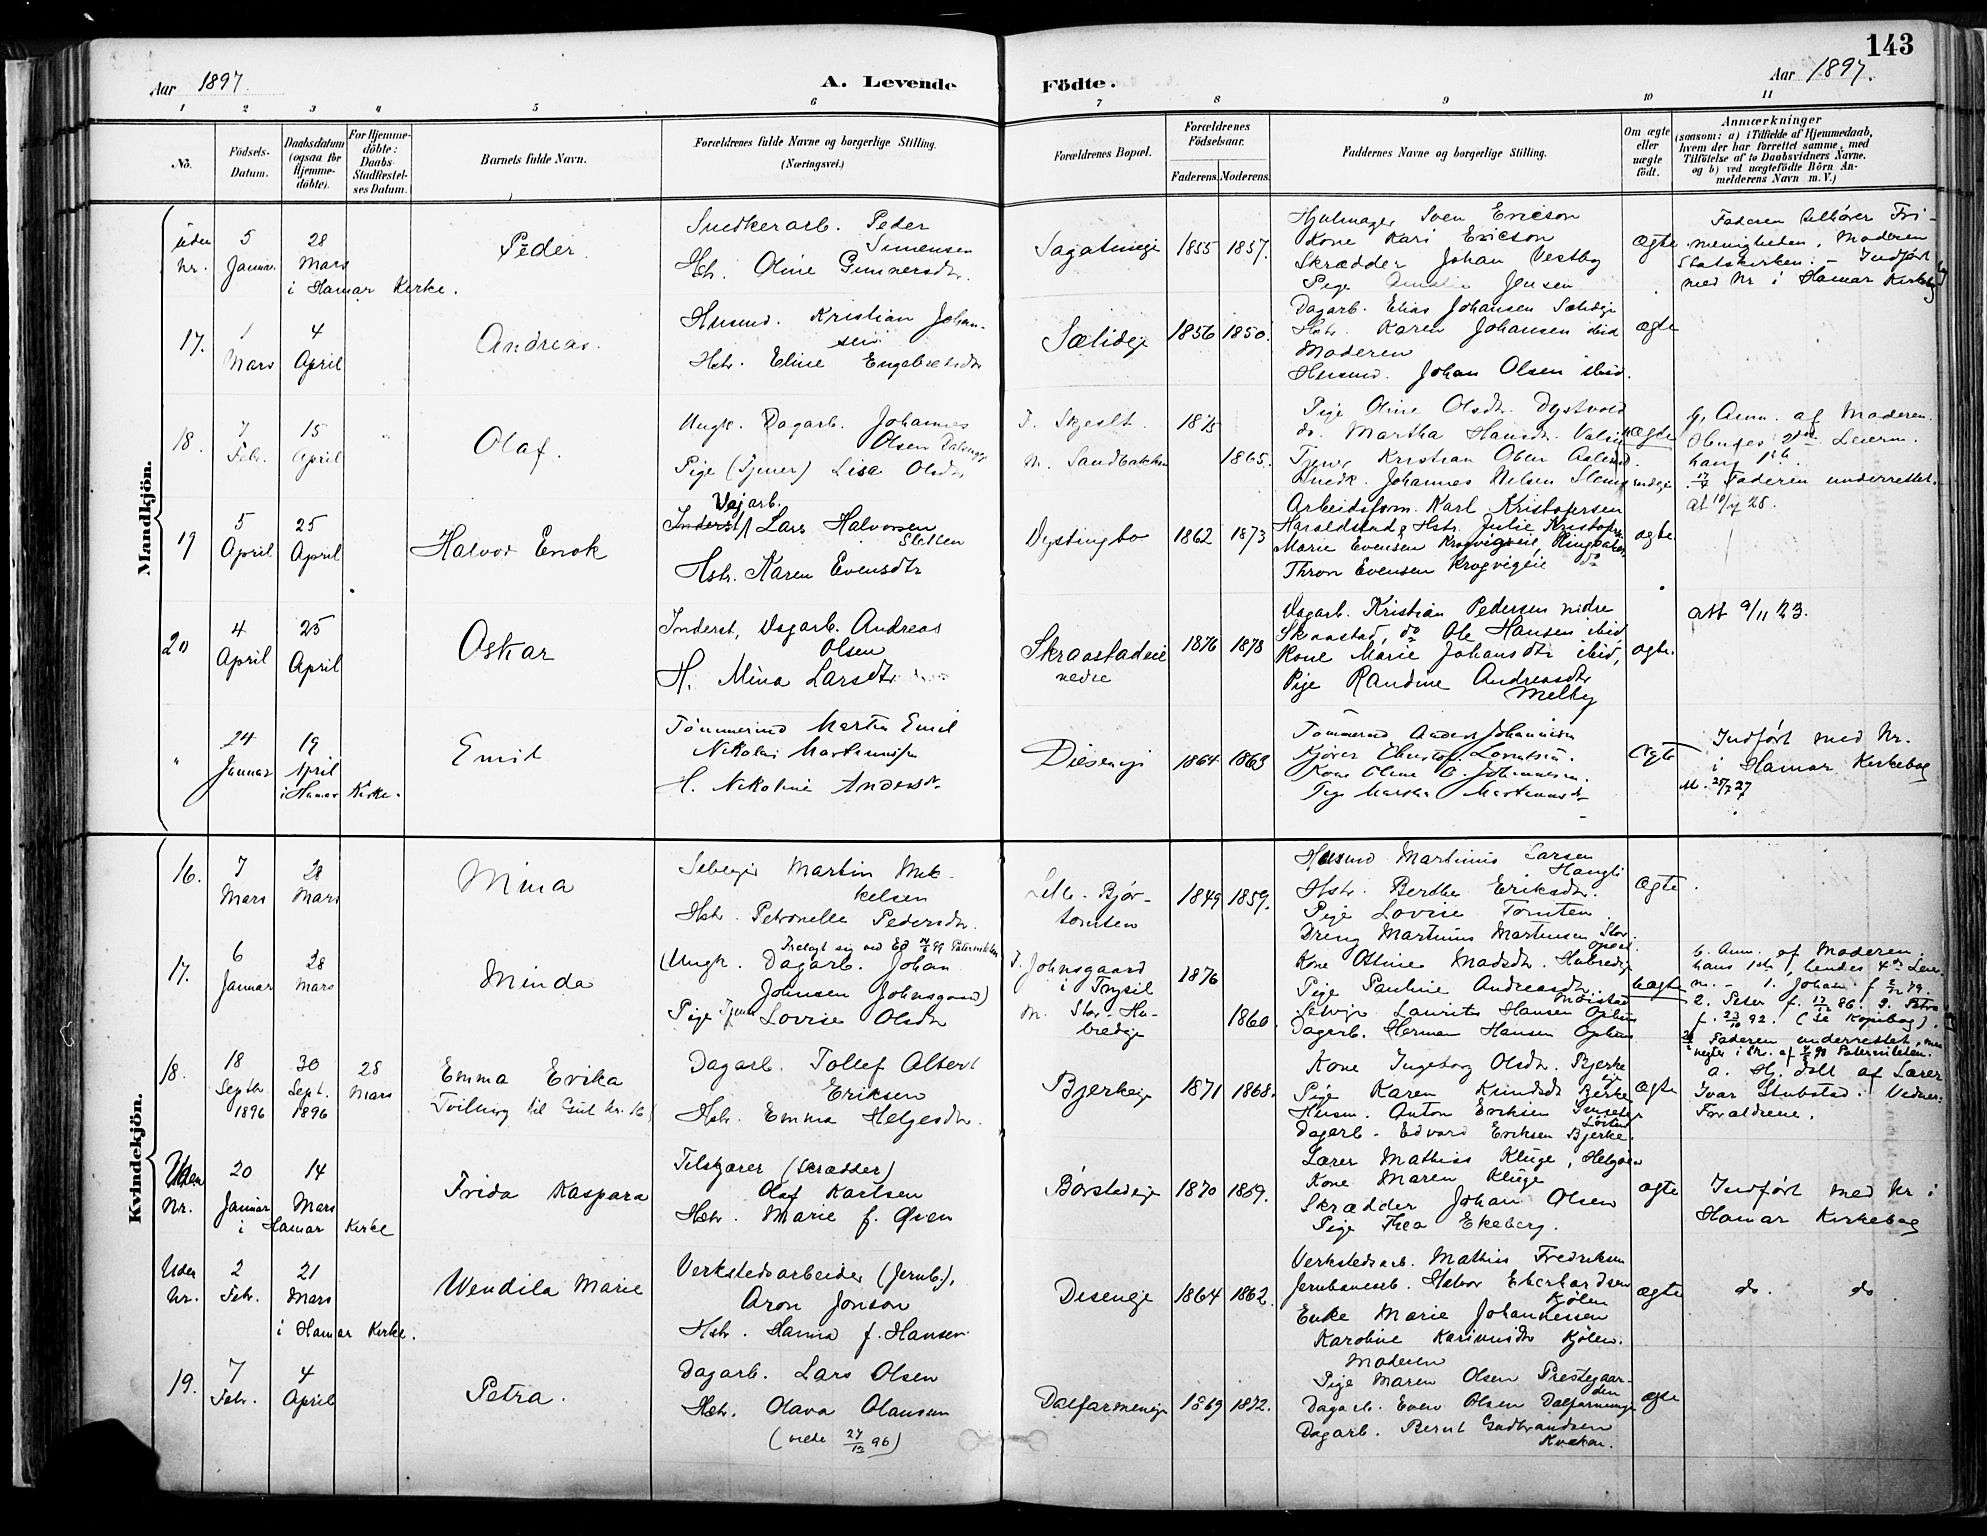 143
Aar 1897.
A. Levende
Födte.
Aar 1897.
1 2 3 4 5 6 7 8 9 10 11
No.
Födsels-
Datum.
Daabsdatum
(ogsaa for
Hjemme-
döbte).
For Hjemme-
döbte:
Daabs-
Stadfæstel-
ses Datum.
Barnets fulde Navn.
Forældrenes fulde Navne og borgerlige Stilling.
(Næringsvei.)
Forældrenes Bopæl.
Forældrenes
Födselsaar.
Faderens. Moderens.
Faddernes Navne og borgerlige Stilling.
Om ægte
eller
uægte
födt.
Anmærkninger
(saasom: a) i Tilfælde af Hjemmedaab,
hvem der har forrettet samme, med
Tilföielse af to Daabsvidners Navne,
og b) ved uægtefödte Börn An-
melderens Navn m. V.)
Mandkjön.
Uden
Nr.
5
Januar
28
Mars
i Hamar Kirke.
Peder
Snedkerarb. Peder
Simensen
Hst. Oline Gunnersdtr.
Sagatuneje
1855 1857.
Hjulmager Sven Ericson
Kone Kari Ericson
Skrædder Johan Vestby
Pige Jensen
Ægte
Faderen tilhører Fri-
menigheden, Moderen
Statskirken. - Indført
med Nr i Hamar Kirkebog
17.
1
Mars
4
April
Andreas.
Husmd. Kristian Johan-
sen
Hst. Eline Engebretsdtr
Sælideje
1856 1850.
Dagarb. Elias Johansen Sælideje
Hst. Karen Johansen ibid
Moderen
Husmd. Johan Olsen ibid.
ægte
18.
7
Febr.
15
April
Olaf.
Ungk. Dagarb. Johannes
Olsen
Pige (Tjener) Lise Olsdtr
F. Skjeslt.
M. Sandbakken
1875
1865.
Pige Oline Olsdtr. Dystvold
do. Martha Hansdtr.
Tjener Kristian Olsen
Snedk. Johannes Nilsen
uægte
b. Anm. af Moderen.
Hendes 2det Leierm.
hans 1ste.
Faderen underrettet.
19
5
April
25
April
Halvor Enok
Vejarb.
Inderst Lars Halvorsen
Sletten
Hstr. Karen Evensdtr
Dystingbo
1862 1873
Arbeidsform. Karl Kristofersen
Haraldstad, Hstr. Julie Kristofersen
Marie Evensen Krogvigeie, Ringsaker,
Thron Evensen Krogvigeie do
ægte
20
4
April
25
April
Oskar
Inderst, Dagarb. Andreas
Olsen
H. Mina Larsdtr
Skraastadeie
nedre
1876 1878
Dagarb. Kristian Pedersen nedre
Skraastad, do Ole Hansen ibid
Kone Marie Johansdtr ibid,
Pige Randine Andreasdtr
Melby
ægte.
Att 9/11 23.
"
24
Januar
19
April
i Hamar Kirke.
Emil
Tømmermd Martin Emil
Nikolai Martinussen
H. Nikoline Andersdtr
Diseneje
1864 1863
Tømmermd Anders Johannesen
Kone Oline O. Johannesen.
Pige Martha Martinusdtr
Ægte
Indført med Nr.
i Hamar Kirkebog
Kvindekjön.
16.
7
Mars
28
Mars
Mina
Selvejer Martin Mik-
kelsen
Hstr. Petronelle Pedersdtr.
Lille Bjør-
tomten
1849 1859.
Husmd Martinus Larsen
Haugli
Hstr. Berthe Eriksdtr.
Pige Lovise Tomten
Dreng Martinus Martinsen
Ægte.
17.
6
Januar
28
Mars
Minda
(Ungk. Dagarb. Johan
Johnsen Johnsgaard)
Pige Tjener Lovise Olsdtr
F. Johnsgaard
i Trysil
M. Stor-Hu-
bredeje
1876
1860.
Kone Oline Madsdtr. Hubredeje
Pige Pauline Andreasdtr.
Selvejer Laurits Hansen
Dagarb. Herman Hansen
Uægte
b. Anm. af Moderen,
hans 1ste, hendes 4de Leier-
m. - 1. Johan f.
2. Peter f. 86. 3. Petra
f. 23/10 92. (se Kopibog).
Faderen underrettet, men
18.
18
Septbr.
1896
30
Sept.
1896
28
Mars
Emma Erika
Tvilling til Gut Nr. 16
Dagarb. Tollef Albert
Eriksen
Hstr. Emma Helgesdtr.
Bjerkeje
1871 1868.
Kone Ingeborg Olsdtr. Bjerke
Pige Karen Knudsdtr Bjerke
Husm. Anton Eriksen
Dagarb. Edvard Eriksen Bjerke.
ægte
a. Hj. døbt af Lærer
Ivar Stubstad. Vidner:
Forældrene.
Uden
Nr.
20
Januar
14
Mars
i Hamar Kirke
Frida Kaspara
Tilskjærer (Skrædder)
Olaf Karlsen
Hstr. Marie f. Øien
Børstadeje
1870 1869.
Lærer Mathias Kluge, Helgøen
Kone Maren Kluge
Skrædder Johan Olsen
Pige Thea Ekeberg.
ægte
Indført med Nr i
Hamar Kirkebog
Uden
Nr.
2
Febr.
21
Mars
i Hamar Kirke.
Wendila Marie
Verkstedsarbeider (Jernb.),
Aron Jonson
Hstr. Hanna f. Hansen
Diseneje
1864 1862.
Verkstedsarb. Mathias Fredriksen
Jernbanearb. Halvor Eberhardsen
Kjølen
Enke Marie Johannessen
Karoline Karinusdtr Kjølen.
ægte
do. do
19.
7
Febr.
4
April
Petra.
Dagarb. Lars Olsen
Hstr. Olava Olausen
(viede 27/12 96)
Dalfarmeneje
1869 1872.
Moderen
Pige Maren Olsen Prestegaar-
den
Dagarb. Even Olsen Dalfarmeneje
Dagarb. Bernt Gudbrandsen
ægte